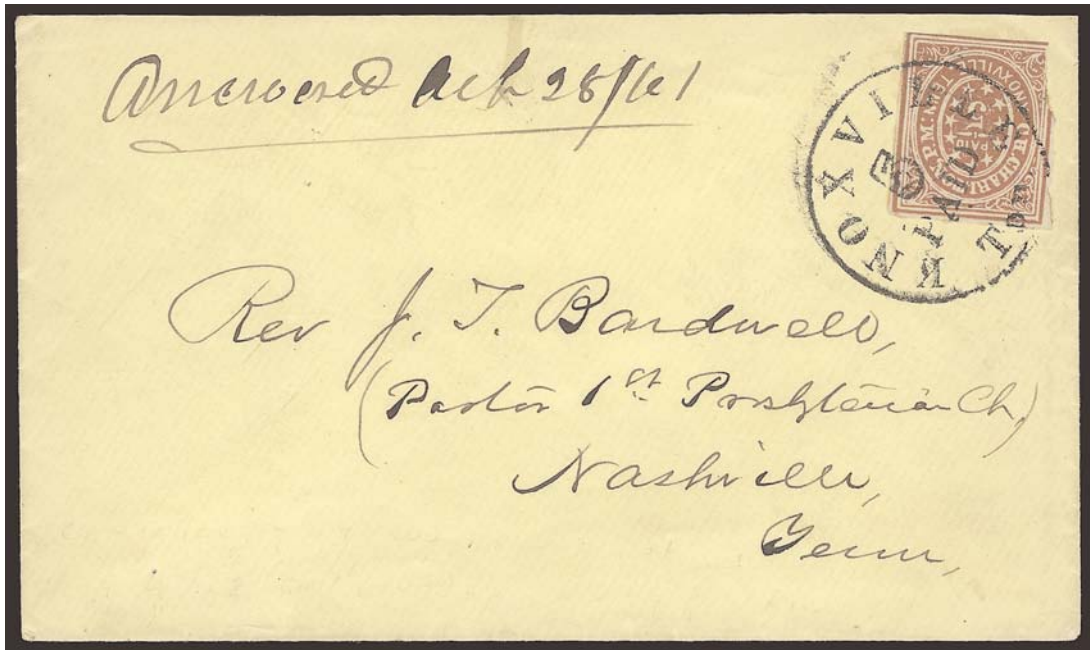 Answered Oct 28/61
KNOXVILLE
Ten
PAID
C.H. CHARLTON. P.M. KNOXVILLE. TEN.
PAID
5
CTS
Rev J. T. Bardwell,
(Pastor 1st Presbyterian Ch,)
Nashville,
Tenn,